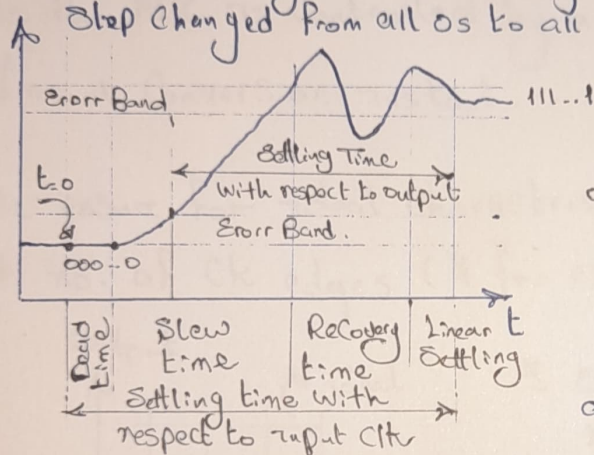 Step Changed from all 0s to all
Erorr Band
111...1
t=0
Settling Time
with respect to output
Erorr Band.
000--0
Dead time
Slew time
Recovery time
Linear Settling
t
Settling time with
respect to input Clk